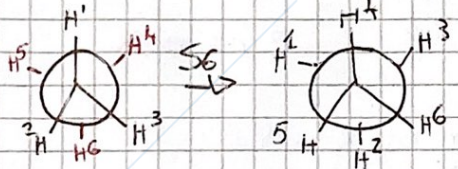 H¹
H⁵ H⁴
²H H⁶ H³
S6
H⁴
H¹ H³
5 H H² H⁶